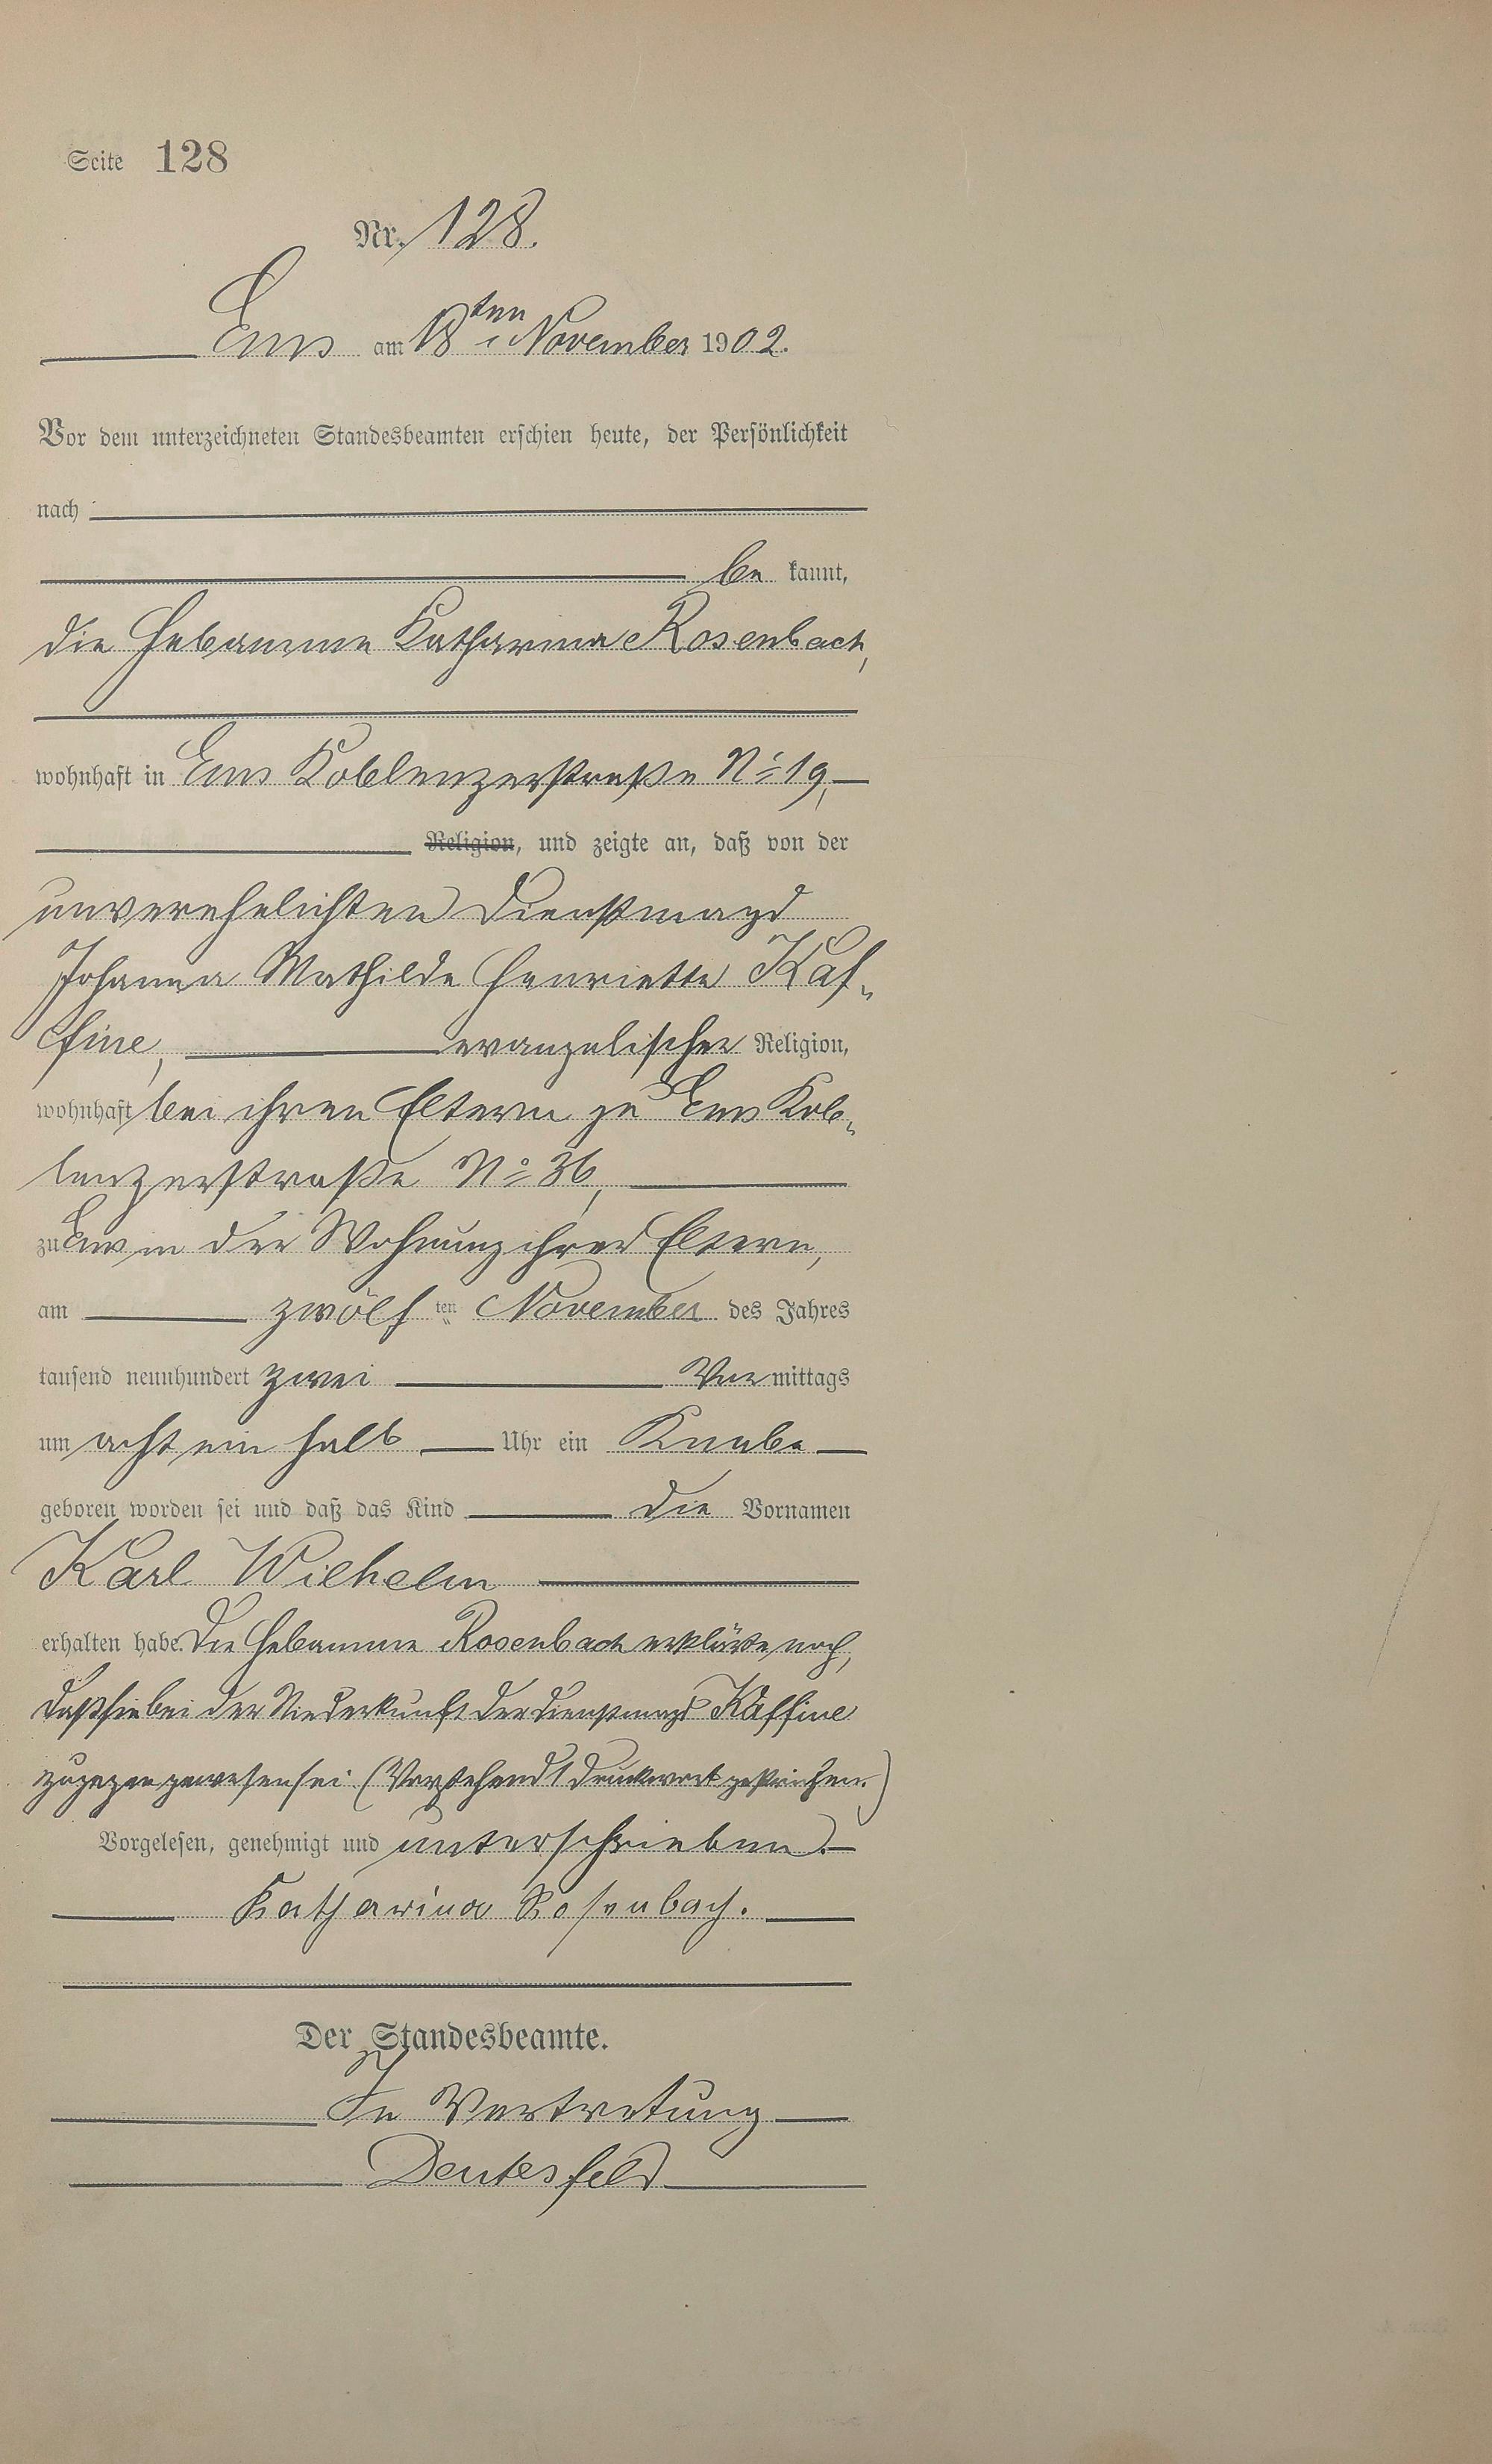 Seite 128
Nr. 128.
Ems am 18ten November 1902.
Vor dem unterzeichneten Standesbeamten erschien heute, der Persönlichkeit
nach
be kannt,
die Hebamme Katharina Rosenbach,
wohnhaft in Ems Koblenzerstraße No 19,
Religion, und zeigte an, daß von der
unverehelichten Dienstmagd
Johanna Mathilde Henriette Kaf-
fine, evangelischer Religion,
wohnhaft bei ihren Eltern zu Ems Kob-
lenzerstraße No 36,
zu Ems in der Wohnung ihrer Eltern,
am zwölf ten November des Jahres
tausend neunhundert zwei Vor mittags
um acht ein halb Uhr ein Knabe
geboren worden sei und daß das Kind die Vornamen
Karl Wilhelm
erhalten habe. Die Hebamme Rosenbach erklärte noch,
daß sie bei der Niederkunft der Dienstmagd Kaffine
zugegen gewesen sei. (Vorstehend 1 Druckwort gestrichen.)
Vorgelesen, genehmigt und unterschrieben.
Katharina Rosenbach.
Der Standesbeamte.
In Vertretung
Deutesfeld